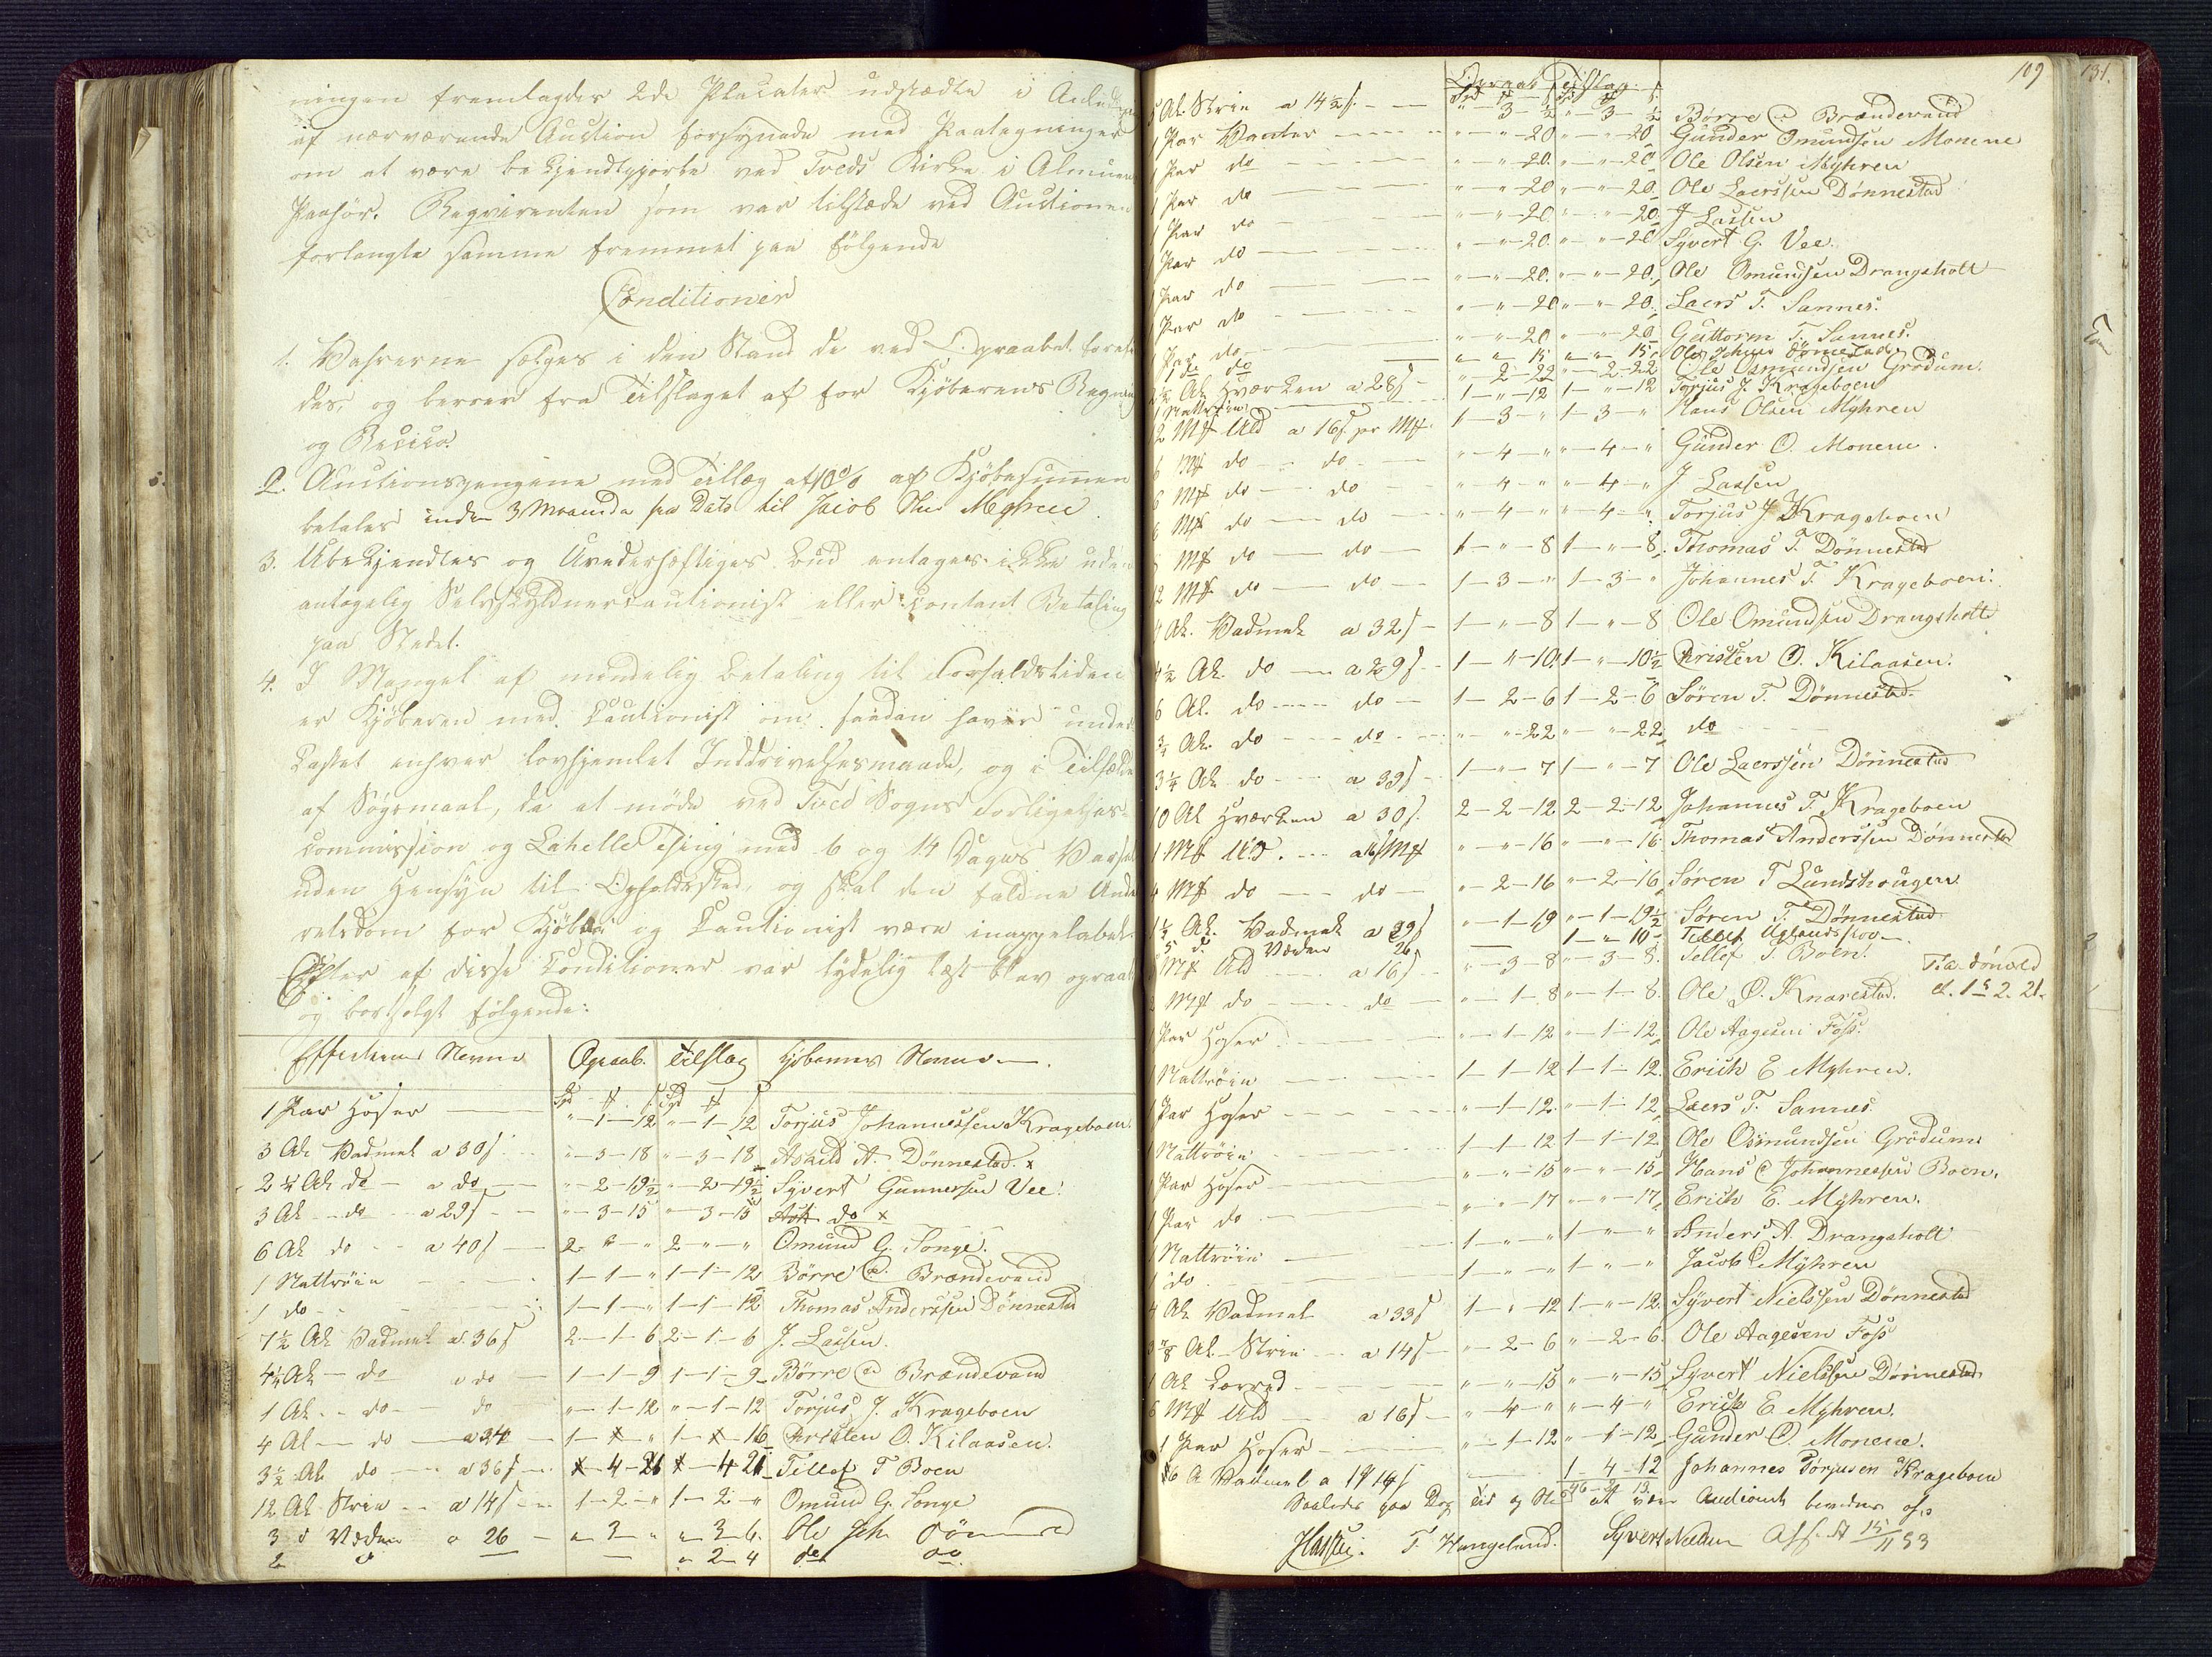 ningen fremlagdes 2de Placater udstædte i
af nærværende Auction forsynede med Paategninger
om at være bekjendtgjorte ved Tveds Kirke i Almuens
Paahør. Reqvirenten som var tilstæde ved Auctionen
forlangte samme fremmet paa følgende
Conditioner
1. Vahrerne sælges i den Stand de ved Opraabet
des, og berører fra Tilslaget af for Kjøberens Regning
og Resico.
2. Auctionspengene med Tillæg af 10% af Kjøbesummen
betales inden 3 Maaneder fra Dato til Jacob Myhren
3. Ubekjendtes og Uvederhæftiges Bud antages ikke uden
antagelig Selvskyldnercautionist eller contant Betaling
paa Stedet.
4. I Mangel af mindelig Betaling til Forfaldstiden
er Kjøberen med Cautionist om saadan haves under
kastet enhver lovhjemlet Inddrivelsesmaade, og i Tilfælde
af Søgsmaal, da at møde ved Tved Sogns Forligelses-
commission og Lahelle Thing med 6 og 14 Dages Varsel
uden Hensyn til Opholdssted, og skal den faldne Unde
retsdom for Kjøber og Cautionist være inappelabel.
Efter at disse Conditioner var tydelig læst blev opraabt
og bortsolgt følgende:
Effecternes Navne Opraab. Tilslag Kjøbernes Navne
Spd # ß Spd # ß
1 Par Hoser " - 1 - 12 " - 1 - 12 Torjus Johannessen Krageboen.
3 Al. Vadmel a 30 ß " - 3 - 18 " - 3 - 18 Askild A. Dønnestad. x
2 1/4 Al do - a do " - 2 - 19 1/2 " - 2 - 19 1/2 Syvert Gunnersen Vee.
3 Al. do a 29 ß " - 3 - 15 " - 3 - 15 do x
6 Al do a 40 ß 2 - " - " 2 - " - " Omund G. Songe.
1 Nattrøie 1 - 1 - " 1 - 1 - 12 Børre C. Brændevand
1 do 1 - 1 - " 1 - 1 - 12 Thomas Anderssen Dønnestad
7 1/2 Al Vadmel a 36 ß 2 - 1 - 6 2 - 1 - 6 J. Lassen.
4 1/4 Al - do a do 1 - 1 - 9 1 - 1 - 9 Børre C. Brændevand
1 Al. - do - do " - 1 - 12 " - 1 - 12 Torjus J. Krageboen
4 Al - do - a 34 1 - 1 - 16 Kristen O. Kilaasen.
3 1/2 Al do - a 36 ß 4 - 21 Tellef T Boen
12 Al. Strie - a 14 ß 1 - 2 - " 1 - 2 - " Omund G. Songe
3 d Væden a 26 " 3 " " 3 - 6. Ole Joh. Dønnestad
2 d " 2 - 4 do do
109
131.
Opraab Tilslag
5 Al. Strie a 14 1/2 ß. " 3 - 1/2 " 3 - 1/2 Børre C. Brændevand
1 Par Vanter " - " - 20 " - " - 20 Gunder Omundsen Monene
1 Par do " - " - 20 " - " - 20 Ole Olsen Myhren
1 Par do " - " - 20 " - " - 20 Ole Laerssen Dønnestad
1 Par do " - " - 20 " - " - 20 J Lassen
1 Par do " - " - 20 " - " - 20 Syvert G. Vee.
1 Par do " - " - 20 " - " - 20 Ole Omundsen Drangsholt
1 Par do " - " - 20 " - " - 20 Laers T. Sannes.
1 Par do " - " - 20 " - " - 20 Guttorm T. Sannes.
1 do do " " 15 " " 15 Ole Dønnestad
2 1/2 Al Hværken a 28 ß " - 2 - 22 " - 2 - 22 Ole Osmundsen Grødum.
1 Nattrøie 1 - " - 12 1 - " - 12 Torjus J. Krageboen
12 M# Uld a 16 ß pr M# 1 - 3 - " 1 - 3 - " Hans Olsen Myhren
6 M# do - do " - 4 - " " - 4 - " Gunder O. Monene.
6 M# do do " - 4 - " " - 4 - " J Lassen
6 M# do do " - 4 - " " - 4 - " Torjus J Krageboen
M# do do 1 - " - 8 1 - " - 8. Thomas T. Dønnestad
12 M# do do 1 - 3 - " 1 - 3 - " Johannes T. Krageboen.
4 Al. Vadmel a 32 ß 1 - " - 8 1 - " - 8 Ole Omundsen Drangsholt
4 1/2 Al. do a 29 ß 1 - " - 10 1/2 1 - " - 10 1/2 Kristen O. Kilaasen.
6 Al. do do 1 - 2 - 6 1 - 2 - 6 Søren T. Dønnestad.
3/4 Al. do do " - " - 22 " - " - 22 do
3 1/4 Al. do a 39 ß 1 - " - 7 1 - " - 7 Ole Laerssen Dønnestad
10 Al Hværken a 30 ß. 2 - 2 - 12 2 - 2 - 12 Johannes T. Krageboen
1 M# Uld. a 16 ß M# " - " - 16 " - " - 16 Thomas Anderssen Dønnestad
4 M# do do " - 2 - 16 " - 2 - 16 Søren T Lundshougen
1 1/2 Al. Vadmel a 29 ß " - 1 - 19 " - 1 - 19 1/2 Søren T. Dønnestad
5 d. Væden 26 1 - " - 10 Tellef
M# Uld a 16 ß " - 3 - 8 " - 3 - 8. Tellef T. Boen.
2 M# do do " - 1 - 8 " - 1 - 8. Ole O. Knarestad.
1 Par Hoser " - 1 - 12 " - 1 - 12 Ole Aagesen Foss.
1 Nattrøie 1 - 1 - 12 1 - 1 - 12. Erich E Myhren.
1 Par Hoser " - 1 - 12 " - 1 - 12 Laers T. Sannes.
1 Nattrøie 1 - 1 - 12 1 - 1 - 12. Ole Osmundsen Grødum.
1 Par Hoser " - " - 15 " - " - 15 Hans C Johannessen Boen.
1 Par do " - " - 17 " - " - 17 Erich E. Myhren.
1 Nattrøie 1 - " - " 1 - " - " Anders A. Drangsholt
1 do 1 - " - " 1 - " - " Jacob C Myhren
4 Al. Vadmel a 33 ß 1 - " - 12 1 - " - 12. Syvert Nielssen Dønnestad
Al. Strie a 14 ß " - 2 - 6 " - 2 - 6. Ole Aagesen Foss
1 Al Lærred " - " - 15 " - " - 15 Syvert Nielssen Dønnestad
6 M# Uld a 16 ß " - 4 - " " - 4 - " Erich E Myhren.
1 Par Hoser " - 1 - 12 " - 1 - 12 Gunder O. Monene.
A Vadmel a 1 - 4 - 12 Johannes Torjusen Krageboen
Saaledes paa Dag Tid og Sted at være Auctionen
Hassel. T Hangeland. Syvert Nielsen 15/11 53